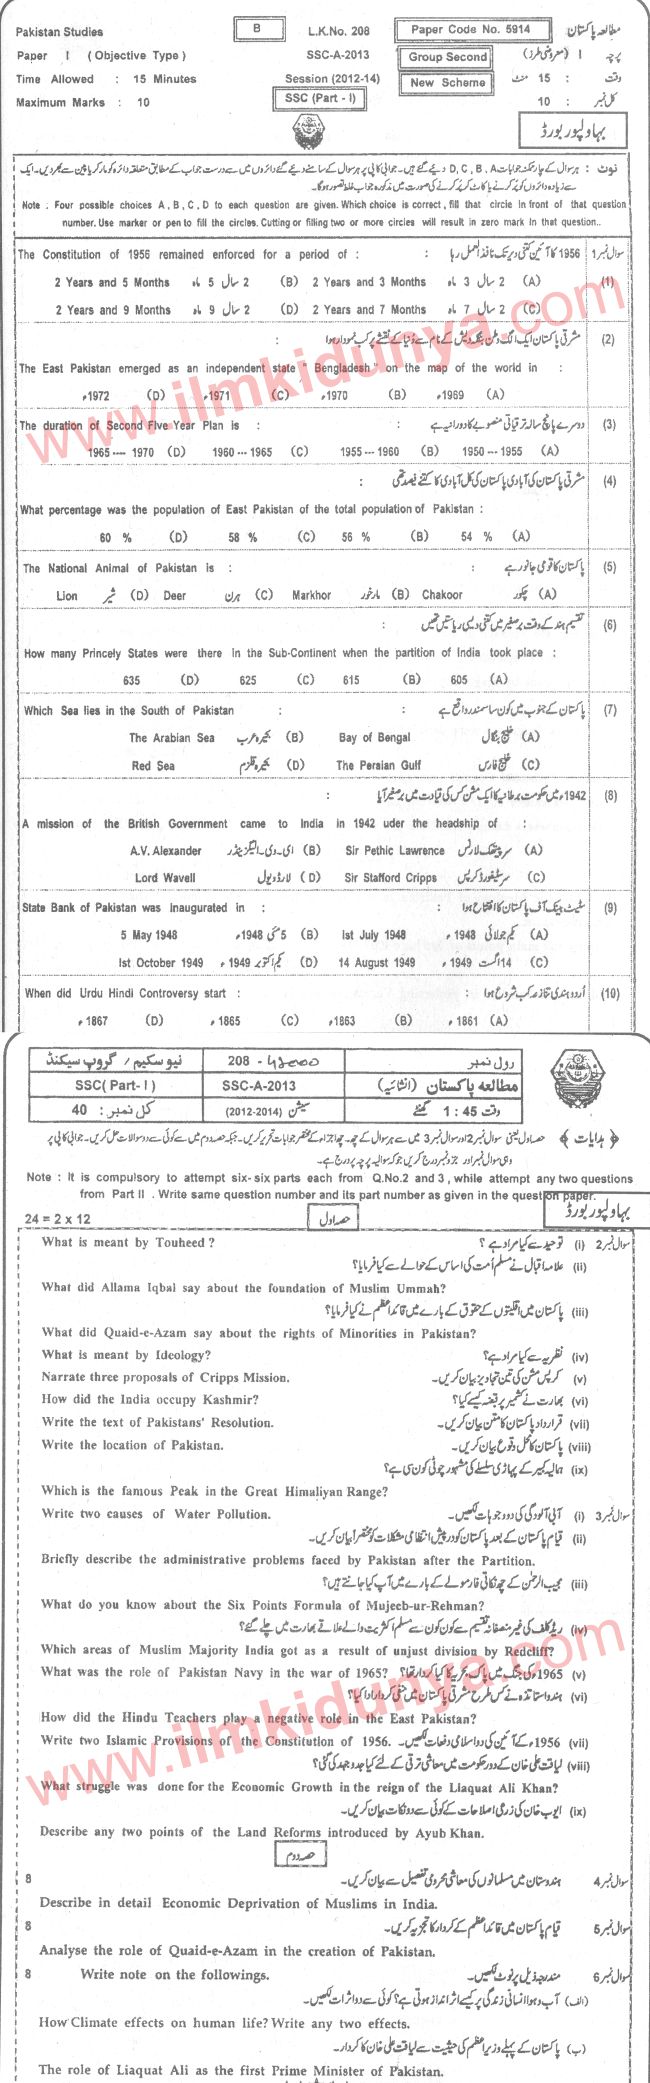 Pakistan Studies B L.K.No. 208 Paper Code No. 5914 مطالعہ پاکستان
Paper I ( Objective Type ) SSC-A-2013 Group Second پرچہ I (معروضی طرز)
Time Allowed : 15 Minutes Session (2012-14) New Scheme وقت : 15 منٹ
Maximum Marks : 10 SSC (Part - I) کل نمبر : 10
بہاولپور بورڈ
نوٹ : ہر سوال کے چار ممکنہ جوابات D, C, B, A دیئے گئے ہیں۔ جوابی کاپی پر ہر سوال کے سامنے دیئے گئے دائروں میں سے درست جواب کے مطابق متعلقہ دائرہ کو مارکر یا پین سے بھر دیں۔ ایک
سے زیادہ دائروں کو پُر کرنے یا کاٹ کر پُر کرنے کی صورت میں مذکورہ جواب غلط تصور ہوگا۔
Note : Four possible choices A , B , C , D to each question are given. Which choice is correct , fill that circle in front of that question
number. Use marker or pen to fill the circles. Cutting or filling two or more circles will result in zero mark In that question..
The Constitution of 1956 remained enforced for a period of : : 1956 کا آئین کتنی دیر تک نافذ العمل رہا سوال نمبر 1
2 Years and 5 Months 2 سال 5 ماہ (B) 2 Years and 3 Months 2 سال 3 ماہ (A) (1)
2 Years and 9 Months 2 سال 9 ماہ (D) 2 Years and 7 Months 2 سال 7 ماہ (C)
: مشرقی پاکستان ایک الگ وطن بنگلہ دیش کے نام سے دُنیا کے نقشے پر کب نمودار ہوا (2)
The East Pakistan emerged as an independent state " Bengladesh " on the map of the world in :
1972ء (D) 1971ء (C) 1970ء (B) 1969ء (A)
The duration of Second Five Year Plan is : : دوسرے پانچ سالہ ترقیاتی منصوبے کا دورانیہ ہے (3)
1965 --- 1970 (D) 1960 --- 1965 (C) 1955 --- 1960 (B) 1950 --- 1955 (A)
: مشرقی پاکستان کی آبادی پاکستان کی کل آبادی کا کتنے فیصد تھی (4)
What percentage was the population of East Pakistan of the total population of Pakistan :
60 % (D) 58 % (C) 56 % (B) 54 % (A)
The National Animal of Pakistan is : : پاکستان کا قومی جانور ہے (5)
Lion شیر (D) Deer ہرن (C) Markhor مارخور (B) Chakoor چکور (A)
: تقسیم ہند کے وقت برصغیر میں کتنی دیسی ریاستیں تھیں (6)
How many Princely States were there in the Sub-Continent when the partition of India took place :
635 (D) 625 (C) 615 (B) 605 (A)
Which Sea lies in the South of Pakistan : : پاکستان کے جنوب میں کون سا سمندر واقع ہے (7)
The Arabian Sea بحیرہ عرب (B) Bay of Bengal خلیج بنگال (A)
Red Sea بحیرہ قلزم (D) The Persian Gulf خلیج فارس (C)
: 1942ء میں حکومت برطانیہ کا ایک مشن کس کی قیادت میں برصغیر آیا (8)
A mission of the British Government came to India in 1942 uder the headship of :
A.V. Alexander اے۔وی۔الیگزینڈر (B) Sir Pethic Lawrence سر پیتھک لارنس (A)
Lord Wavell لارڈ ویول (D) Sir Stafford Cripps سر سٹیفورڈ کرپس (C)
State Bank of Pakistan was inaugurated in : : سٹیٹ بینک آف پاکستان کا افتتاح ہوا (9)
5 May 1948 5 مئی 1948ء (B) Ist July 1948 یکم جولائی 1948ء (A)
Ist October 1949 یکم اکتوبر 1949ء (D) 14 August 1949 14 اگست 1949ء (C)
When did Urdu Hindi Controversy start : : اُردو ہندی تنازعہ کب شروع ہوا (10)
1867ء (D) 1865ء (C) 1863ء (B) 1861ء (A)
نیو سکیم / گروپ سیکنڈ 208 - رول نمبر
SSC( Part- I ) SSC-A-2013 مطالعہ پاکستان (انشائیہ)
کل نمبر : 40 سیشن (2012-2014) وقت 1 : 45 گھنٹے
﴿ ہدایات ﴾ حصہ اول یعنی سوال نمبر 2 اور سوال نمبر 3 میں سے ہر سوال کے چھ۔ چھ اجزاء کے مختصر جوابات تحریر کریں۔ جبکہ حصہ دوم میں سے کوئی سے دو سوالات حل کریں۔ جوابی کاپی پر
وہی سوال نمبر اور جزو نمبر درج کریں جو کہ سوالیہ پرچہ پر درج ہے۔
Note : It is compulsory to attempt six- six parts each from Q.No.2 and 3 , while attempt any two questions
from Part II . Write same question number and its part number as given in the question paper.
24 = 2 x 12 حصہ اول بہاولپور بورڈ
What is meant by Touheed ? توحید سے کیا مراد ہے ؟ (i) سوال نمبر 2
علامہ اقبال نے مسلم اُمت کی اساس کے حوالے سے کیا فرمایا؟ (ii)
What did Allama Iqbal say about the foundation of Muslim Ummah?
پاکستان میں اقلیتوں کے حقوق کے بارے میں قائداعظم نے کیا فرمایا؟ (iii)
What did Quaid-e-Azam say about the rights of Minorities in Pakistan?
What is meant by Ideology? نظریہ سے کیا مراد ہے؟ (iv)
Narrate three proposals of Cripps Mission. کرپس مشن کی تین تجاویز بیان کریں۔ (v)
How did the India occupy Kashmir? بھارت نے کشمیر پر قبضہ کیسے کیا؟ (vi)
Write the text of Pakistans' Resolution. قرارداد پاکستان کا متن بیان کریں۔ (vii)
Write the location of Pakistan. پاکستان کا محل وقوع بیان کریں۔ (viii)
ہمالیہ کبیر کے پہاڑی سلسلے کی مشہور چوٹی کون سی ہے؟ (ix)
Which is the famous Peak in the Great Himaliyan Range?
Write two causes of Water Pollution. آبی آلودگی کی دو وجوہات لکھیں۔ (i) سوال نمبر 3
قیام پاکستان کے بعد پاکستان کو درپیش انتظامی مشکلات کو مختصراً بیان کریں۔ (ii)
Briefly describe the administrative problems faced by Pakistan after the Partition.
مجیب الرحمٰن کے چھ نکاتی فارمولے کے بارے میں آپ کیا جانتے ہیں؟ (iii)
What do you know about the Six Points Formula of Mujeeb-ur-Rehman?
ریڈکلف کی غیر منصفانہ تقسیم سے کون کون سے مسلم اکثریت والے علاقے بھارت میں چلے گئے؟ (iv)
Which areas of Muslim Majority India got as a result of unjust division by Redcliff?
What was the role of Pakistan Navy in the war of 1965? 1965ء کی جنگ میں پاک بحریہ کا کیا کردار تھا؟ (v)
ہندو اساتذہ نے کس طرح مشرقی پاکستان میں منفی کردار ادا کیا؟ (vi)
How did the Hindu Teachers play a negative role in the East Pakistan?
Write two Islamic Provisions of the Constitution of 1956. 1956ء کے آئین کی دو اسلامی دفعات لکھیں۔ (vii)
لیاقت علی خان کے دور حکومت میں معاشی ترقی کے لئے کیا جدوجہد کی گئی؟ (viii)
What struggle was done for the Economic Growth in the reign of the Liaquat Ali Khan?
ایوب خان کی زرعی اصلاحات کے کوئی سے دو نکات بیان کریں۔ (ix)
Describe any two points of the Land Reforms introduced by Ayub Khan.
حصہ دوم
8 ہندوستان میں مسلمانوں کی معاشی محرومی تفصیل سے بیان کریں۔ سوال نمبر 4
Describe in detail Economic Deprivation of Muslims in India.
8 قیام پاکستان میں قائداعظم کے کردار کا تجزیہ کریں۔ سوال نمبر 5
Analyse the role of Quaid-e-Azam in the creation of Pakistan.
8 Write note on the followings. مندرجہ ذیل پر نوٹ لکھیں۔ سوال نمبر 6
(الف) آب و ہوا انسانی زندگی پر کیسے اثر انداز ہوتی ہے؟ کوئی سے دو اثرات لکھیں۔
How Climate effects on human life? Write any two effects.
(ب) پاکستان کے پہلے وزیر اعظم کی حیثیت سے لیاقت علی خان کا کردار۔
The role of Liaquat Ali as the first Prime Minister of Pakistan.
www.ilmkidunya.com
www.ilmkidunya.com